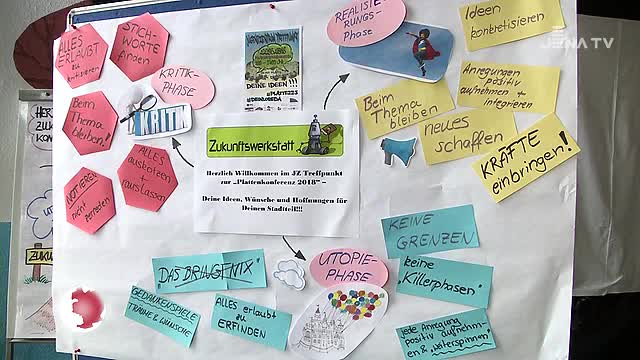 JENA TV
ALLES
ERLAUBT
zu
kritisieren
STICH-
WORTE
finden
KRITIK-
PHASE
KRITIK
Beim
Thema
bleiben!
ALLES
auskotzen +
rauslassen
NOTIEREN
nicht
zerreden
DEINE IDEEN !!!
REALISIE-
RUNGS-
PHASE
Ideen
konkretisieren
Anregungen
positiv
aufnehmen +
integrieren
Beim
Thema
bleiben
neues
schaffen
KRÄFTE
einbringen!
Zukunftswerkstatt
Herzlich Willkommen im JZ Treffpunkt
zur „Plattenkonferenz 2018“ –
Deine Ideen, Wünsche und Hoffnungen für
Deinen Stadtteil!!!
UTOPIE-
PHASE
"DAS BRINGT NIX"
GEDANKENSPIELE
TRÄUME & WÜNSCHE
ALLES erlaubt
zu
ERFINDEN
KEINE
GRENZEN
keine
"Killerphasen"
jede Anregung
positiv aufnehm-
en & "weiterspinnen"